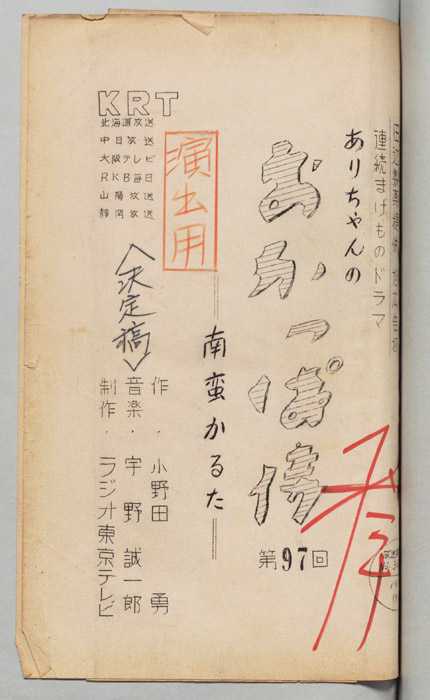 連続まげものドラマ
ありちゃんの
おかっぱ侍
第97回
南蛮かるた
演出用
KRT
北海道放送
中日放送
大阪テレビ
RKB毎日
山陽放送
静岡放送
<決定稿>
作・小野田 勇
音楽・宇野誠一郎
制作・ラジオ東京テレビ